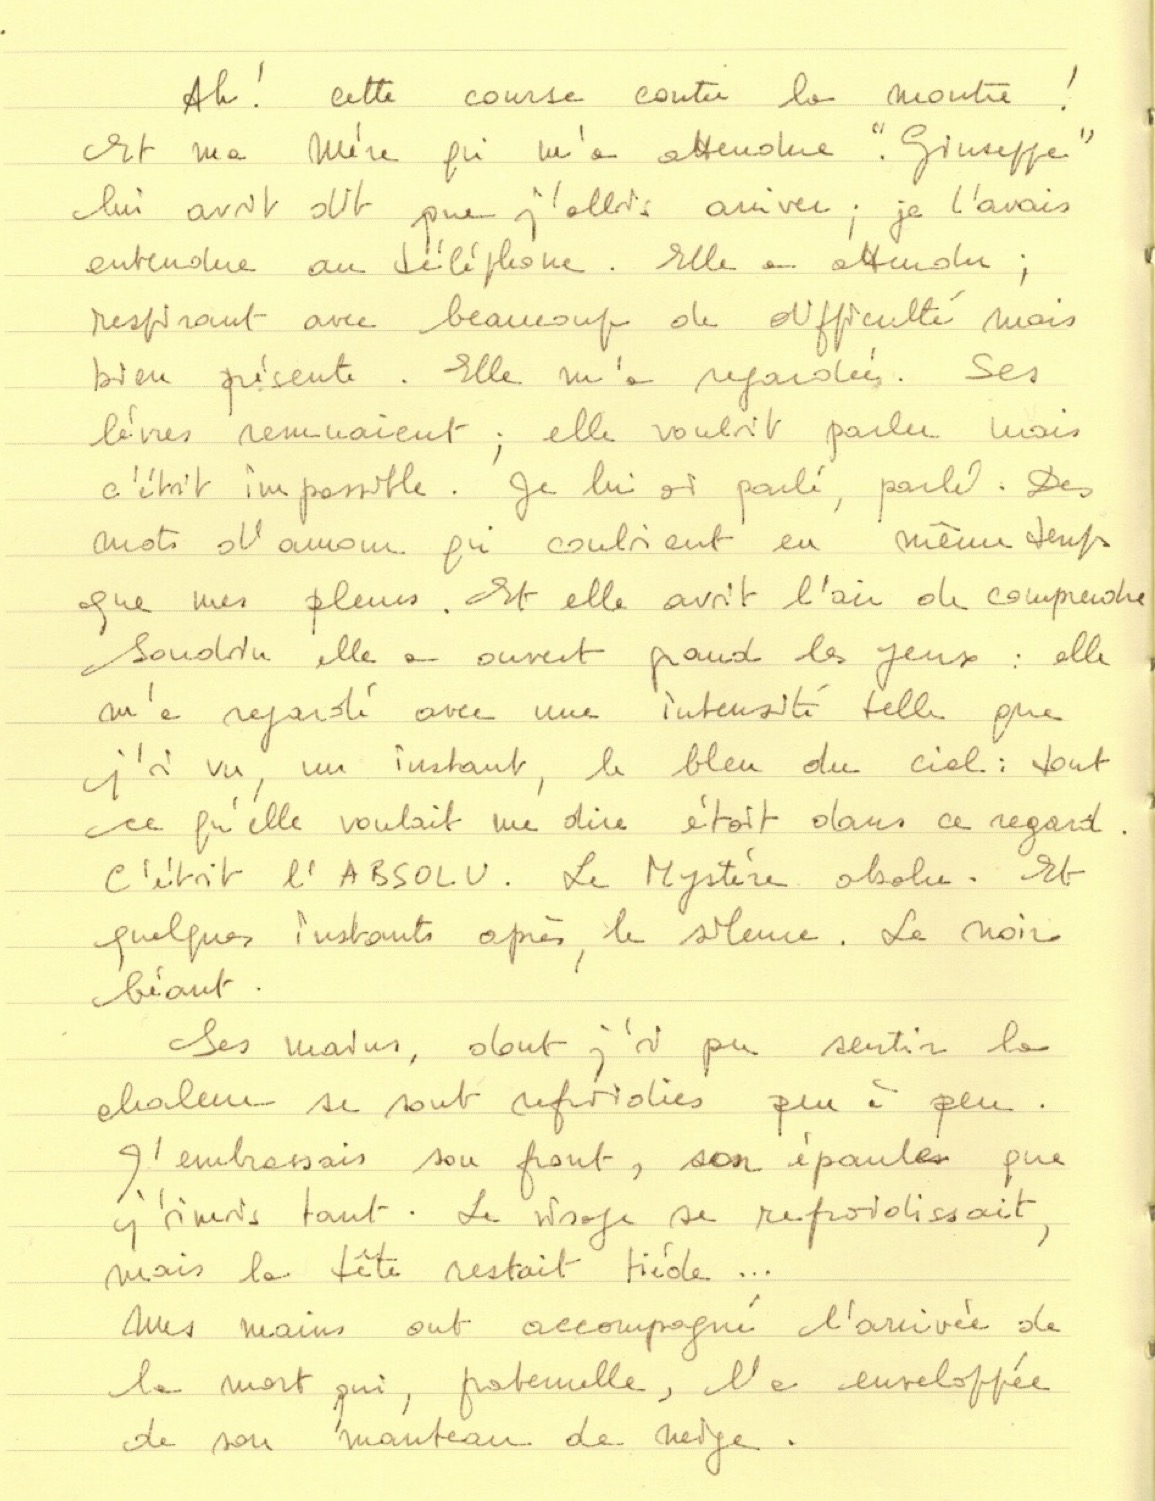 Ah! cette course contre la montre !
Et ma Mère qui m'a attendue. "Giuseppe"
lui avait dit que j'allais arriver ; je l'avais
entendue au téléphone. Elle a attendu ;
respirant avec beaucoup de difficulté mais
bien présente. Elle m'a regardée. Ses
lèvres remuaient ; elle voulait parler mais
c'était impossible. Je lui ai parlé, parlé. Des
mots d'amour qui coulaient en même temps
que mes pleurs. Et elle avait l'air de comprendre
Soudain elle a ouvert grand les yeux : elle
m'a regardé avec une intensité telle que
j'ai vu, un instant, le bleu du ciel : tout
ce qu'elle voulait me dire était dans ce regard.
C'était l'ABSOLU. Le Mystère absolu. Et
quelques instants après, le silence. Le noir
béant.
Ses mains, dont j'ai pu sentir la
chaleur se sont refroidies peu à peu.
J'embrassais son front, son épaules que
j'aimais tant. Le visage se refroidissait,
mais la tête restait tiède ...
Mes mains ont accompagné l'arrivée de
la mort qui, fraternelle, l'a enveloppée
de son manteau de neige.